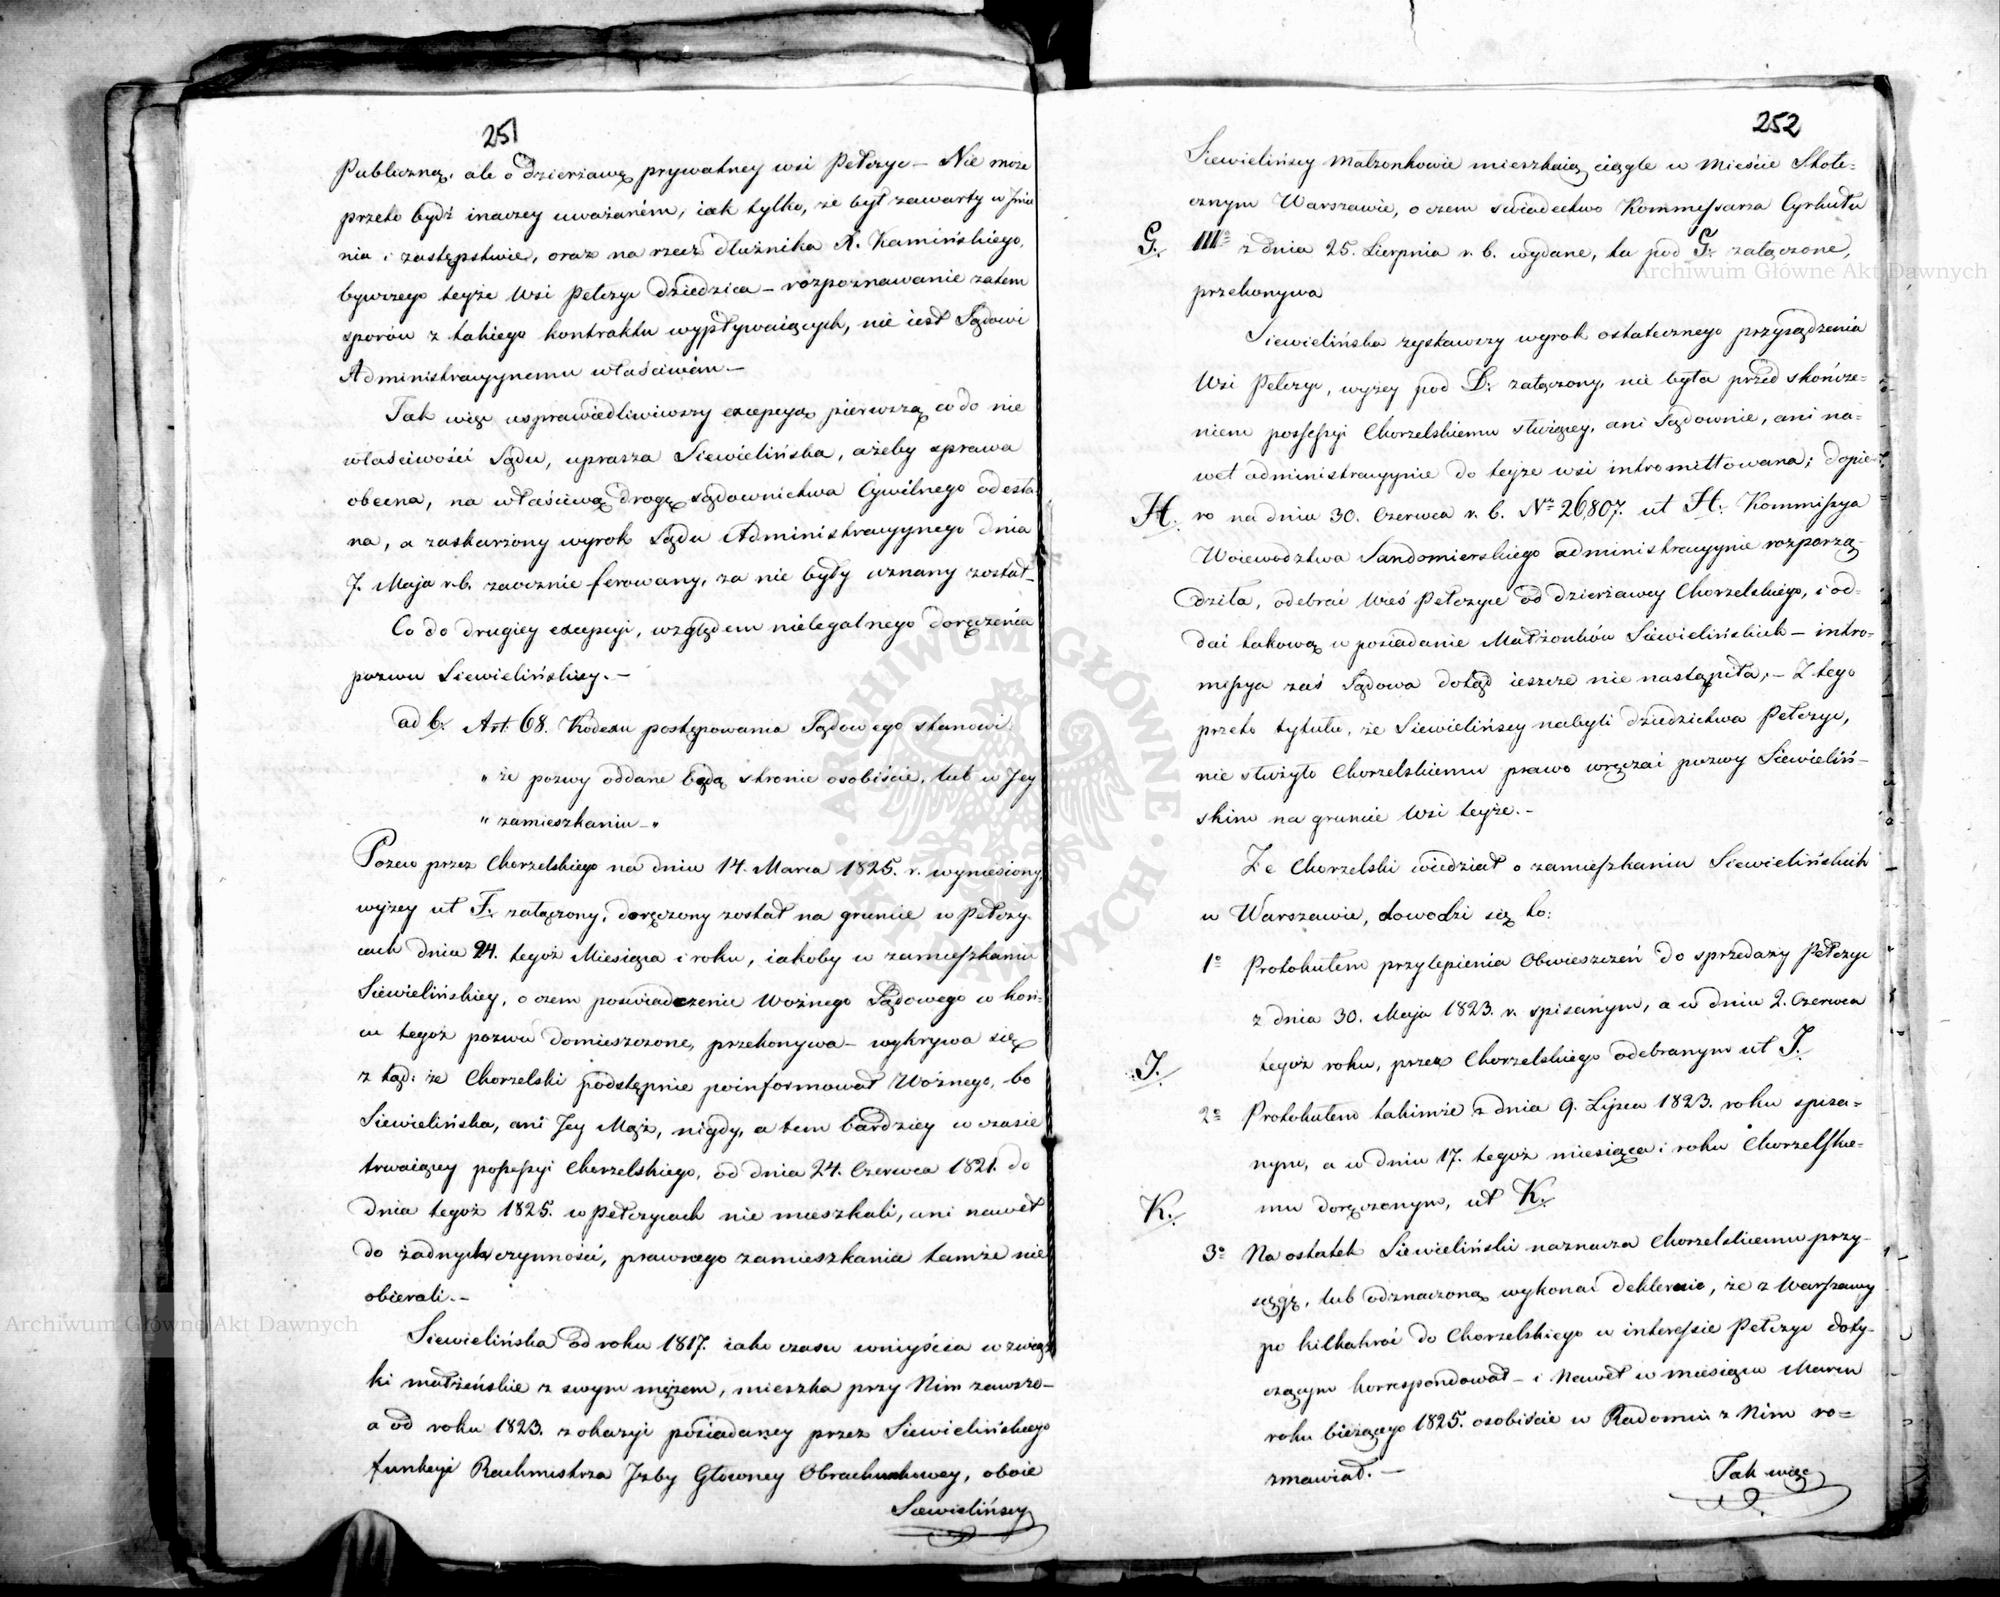 251
Publiczną, ale o dzierżawę prywatney wsi Pełczyc – Nie może
przeto bydź inaczey uważaném, iak tylko, że był zawarty w Jmie
niu i zastępstwie, oraz na rzecz dłużnika X. Kamińskiego,
bywszego teyże Wsi Pełczyc dziedzica – rozpoznawanie zatem
sporów z takiego kontraktu wypływaiących, nie iest Sądowi
Administracyynemu właściwém –
Tak więc usprawiedliwiwszy excepcyą pierwszą co do nie
właściwości Sądu, uprasza Siewielińska, ażeby sprawa
obecna, na właściwą drogę sądownictwa Cywilnego odesła
na, a zaskarżony wyrok Sądu Administracyynego dnia
7. Maja r.b. zaocznie ferowany, za nie były uznany został –
Co do drugiey excepcyi, względem nielegalnego doręczenia
pozwu Siewielińskiey. –
ad b. Art. 68. Kodexu postępowania Sądowego stanowi:
„ że pozwy oddane będą stronie osobiście, lub w Jey
„ zamieszkaniu – "
Pozew przez Chorzelskiego na dniu 14. Marca 1825. r. wyniesiony,
wyżey ut F. załączony, doręczony został na gruncie w Pełczy-
cach dnia 24. tegoż Miesiąca i roku, iakoby w zamieszkaniu
Siewielińskiey, o czem poświadczenie Woźnego Sądowego w koń-
cu tegoż pozwu domieszczone, przekonywa – wykrywa się
z tąd: że Chorzelski podstępnie poinformował Woźnego, bo
Siewielińska, ani Jey Mąż, nigdy, a tem bardziey w czasie
trwaiącey possessyi Chorzelskiego, od dnia 24. Czerwca 1821. do
dnia tegoż 1825. w Pełczycach nie mieszkali, ani nawet
do żadnych czynności, prawnego zamieszkania tamże nie
obierali. –
Siewielińska od roku 1817. iako czasu wniyścia w związ
ki małżeńskie z swym mężem, mieszka przy Nim zawsze –
a od roku 1823. z okazyi posiadaney przez Siewielińskiego
funkcyi Rachmistrza Jzby Głowney Obrachunkowey, oboie
Siewielińscy
252
Siewielińscy Małżonkowie mieszkaią ciągle w Mieście Stołe=
cznym Warszawie, o czem świadectwo Kommissarza Cyrkułu
G. IIIo z dnia 25. Sierpnia r. b. wydane, tu pod G. załączone,
przekonywa
Siewielińska zyskawszy wyrok ostatecznego przysądzenia
Wsi Pełczyc, wyżey pod D. załączony, nie była przed skończe=
niem possessyi Chorzelskiemu służącey, ani Sądownie, ani na=
wet administracyynie do teyże wsi intromittowana; dopie-
H. ro na dniu 30. Czerwca r. b. No 26,807. ut H. Kommissya
Woiewodztwa Sandomierskiego administracyynie rozporzą-
dziła, odebrać Wieś Pełczyce od dzierżawcy Chorzelskiego, i od-
dać takową w posiadanie Małżonków Siewielińskich – intro-
missya zaś Sądowa dotąd ieszcze nie nastąpiła, – Z tego
przeto tytułu, że Siewielińscy nabyli dziedzictwa Pełczyc,
nie służyło Chorzelskiemu prawo wręczać pozwy Siewieliń-
skim na gruncie Wsi teyże. –
Że Chorzelski wiedział o zamieszkaniu Siewielińskich
w Warszawie, dowodzi się to:
1o Protokułem przylepienia Obwieszczeń do sprzedaży Pełczyc
z dnia 30. Maja 1823. r. spisanym, a w dniu 2. Czerwca
J. tegoż roku, przez Chorzelskiego odebranym ut J.
2o Protokułem takimże z dnia 9. Lipca 1823. roku spisa-
nym, a w dniu 17. tegoż miesiąca i roku Chorzelskie-
K. mu doręczonym, ut K.
3o Na ostatek Siewieliński naznacza Chorzelskiemu przy-
sięgę, lub odznaczoną wykonać deklaruie, że z Warszawy
po kilkakroć do Chorzelskiego w interessie Pełczyc doty-
czącym korrespondował – i nawet w miesiącu Marcu
roku bieżącego 1825. osobiście w Radomiu z Nim ro=
zmawiał. –
Tak więc
Archiwum Główne Akt Dawnych
Archiwum Główne Akt Dawnych
ARCHIWUM GŁÓWNE AKT DAWNYCH